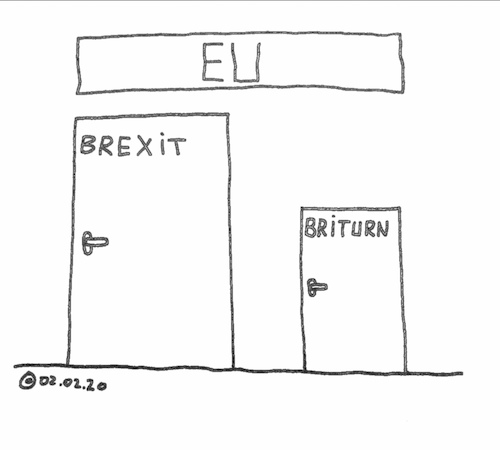 EU
BREXiT
BRiTURN
©02.02.20